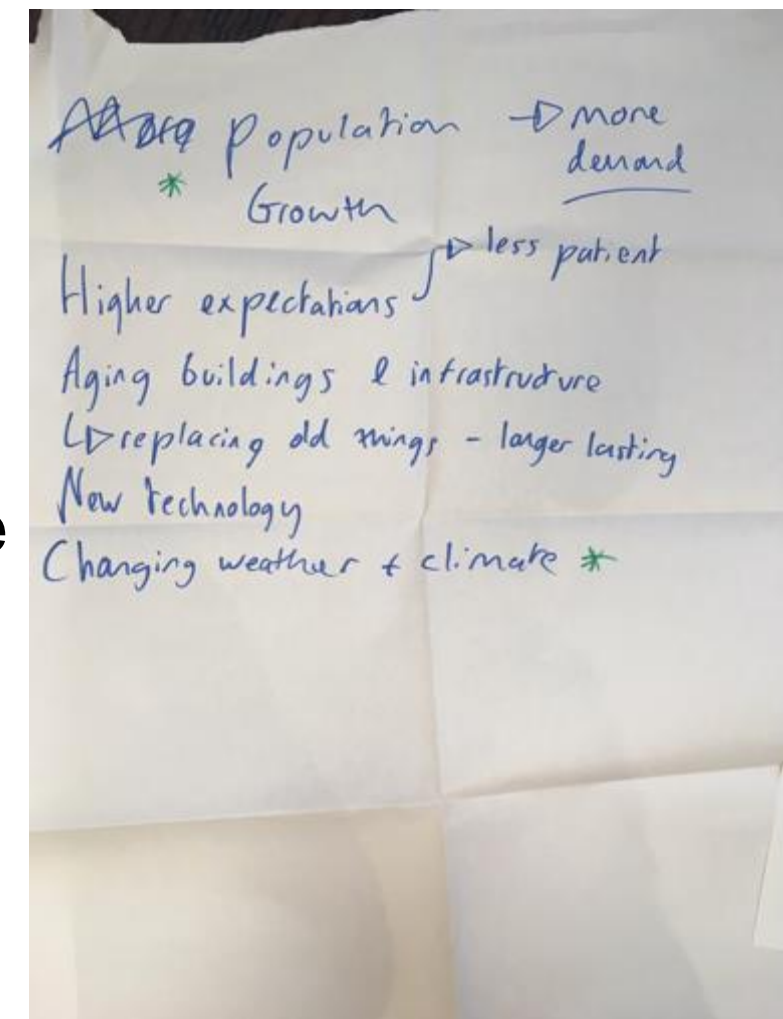 More Population → more
demand
* Growth
Higher expectations → less patient
Aging buildings & infrastructure
↳ replacing old things - longer lasting
New technology
Changing weather + climate *
e